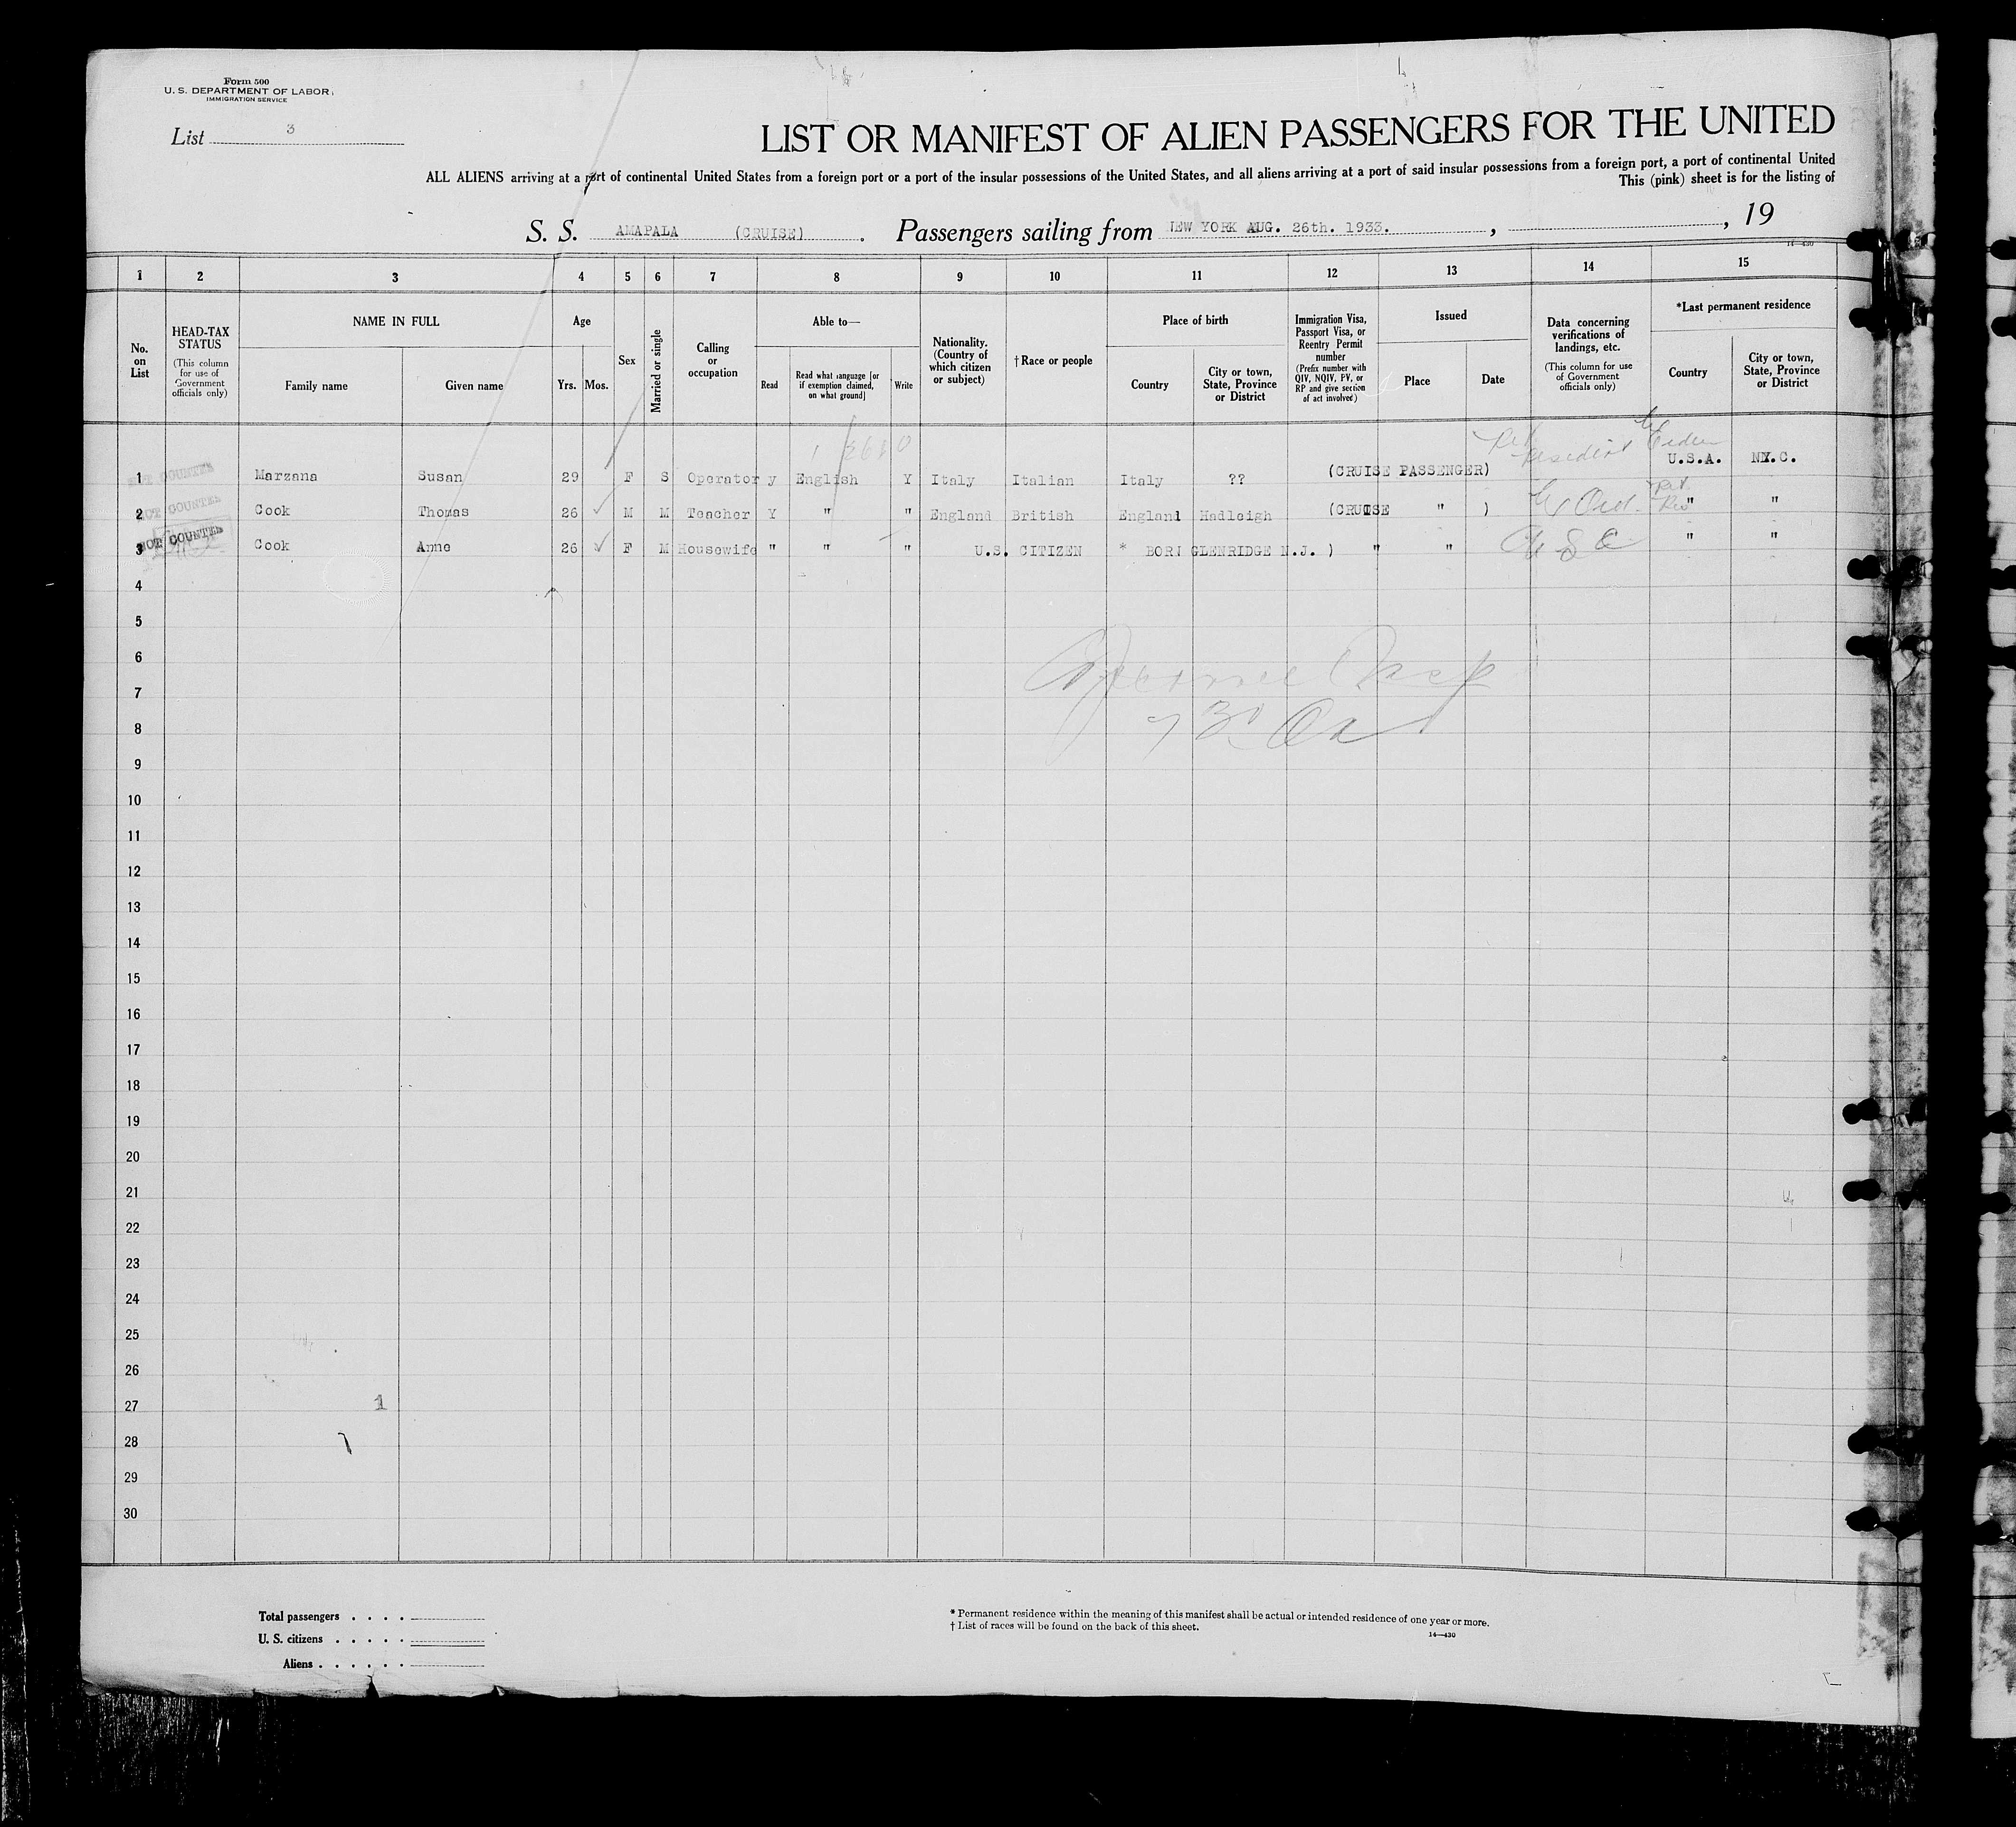 Form 500
U. S. DEPARTMENT OF LABOR
IMMIGRATION SERVICE
List 3
LIST OR MANIFEST OF ALIEN PASSENGERS FOR THE UNITED
ALL ALIENS arriving at a port of continental United States from a foreign port or a port of the insular possessions of the United States, and all aliens arriving at a port of said insular possessions from a foreign port, a port of continental United
This (pink) sheet is for the listing of
S. S. AMAPALA (CRUISE). Passengers sailing from NEW YORK AUG. 26th. 1933. , , 19
14-430
1 2 3 4 5 6 7 8 9 10 11 12 13 14 15
No. on List
HEAD-TAX STATUS
(This column for use of Government officials only)
NAME IN FULL
Family name
Given name
Age
Yrs. Mos.
Sex
Married or single
Calling or occupation
Able to—
Read
Read what language [or if exemption claimed, on what ground]
Write
Nationality. (Country of which citizen or subject)
† Race or people
Place of birth
Country
City or town, State, Province or District
Immigration Visa, Passport Visa, or Reentry Permit number
(Prefix number with QIV, NQIV, PV, or RP and give section of act involved)
Issued
Place
Date
Data concerning verifications of landings, etc.
(This column for use of Government officials only)
*Last permanent residence
Country
City or town, State, Province or District
1 NOT COUNTED Marzana Susan 29 F S Operator y English Y Italy Italian Italy ?? (CRUISE PASSENGER) U.S.A. NY.C.
2 NOT COUNTED Cook Thomas 26 M M Teacher Y " " England British England Hadleigh (CRUISE " ) " "
3 NOT COUNTED Cook Anne 26 F M Housewife " " " U.S. CITIZEN * BORN GLENRIDGE N.J. ) " " U S C " "
4
5
6
7
8
9
10
11
12
13
14
15
16
17
18
19
20
21
22
23
24
25
26
27 1
28
29
30
Total passengers . . . .
U. S. citizens . . . . .
Aliens . . . . . .
* Permanent residence within the meaning of this manifest shall be actual or intended residence of one year or more.
† List of races will be found on the back of this sheet.
14—430